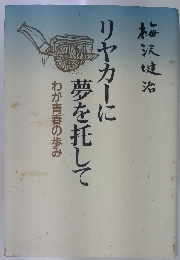 梅沢健治
リヤカーに
夢を托して
わが青春の歩み